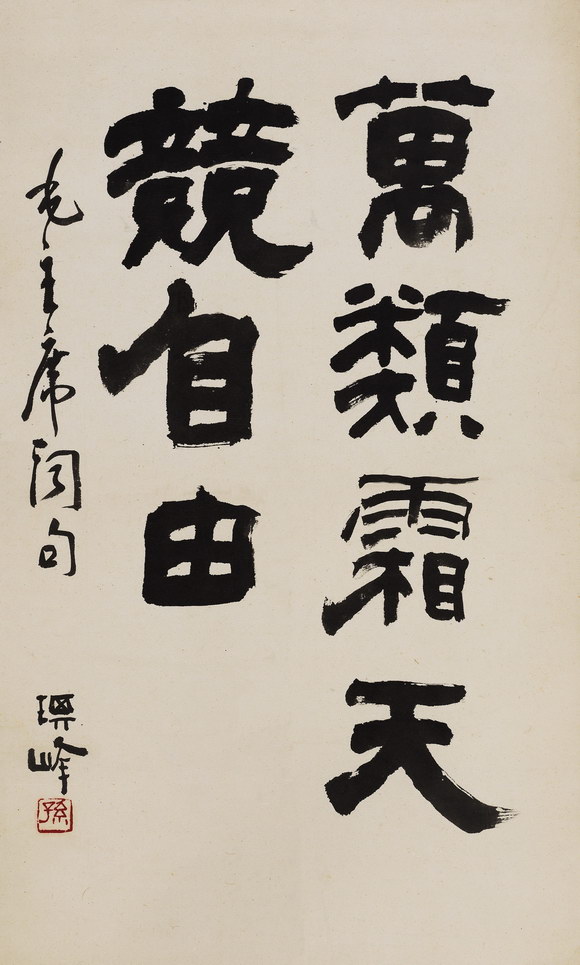 萬類霜天
競自由
毛主席詞句
琪峰
孫